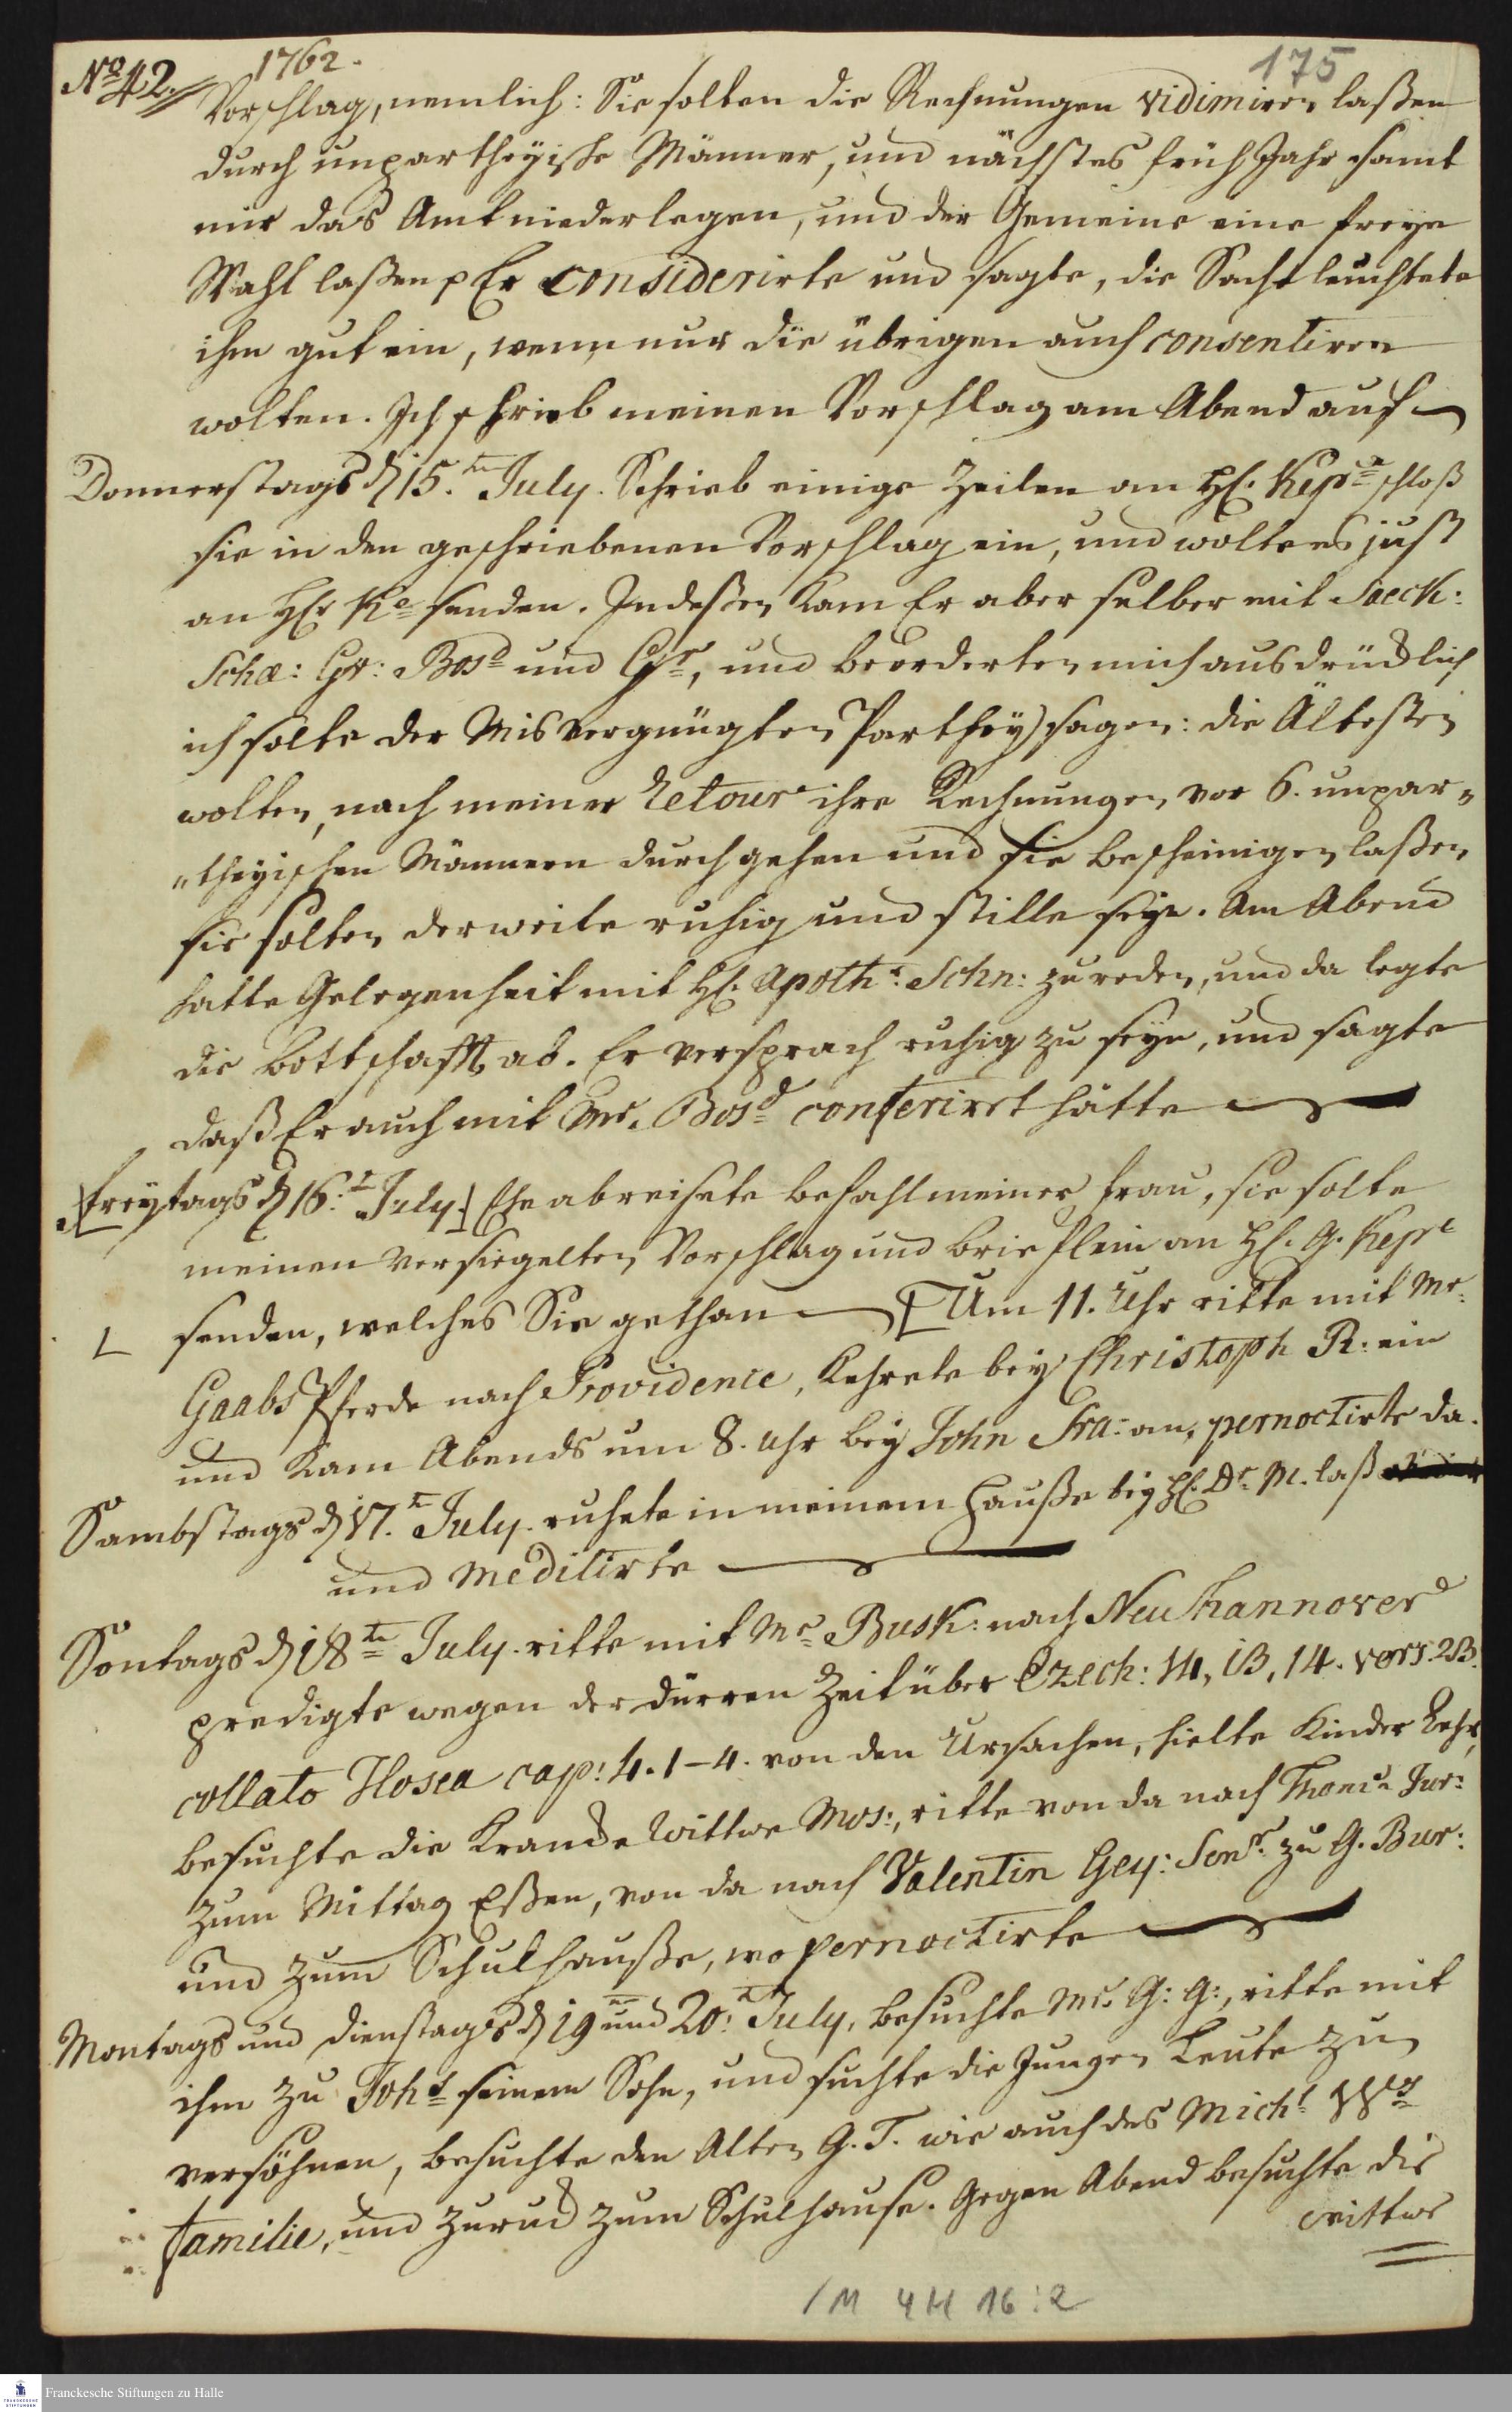 No 42. 1762. 175
Vorschlag, nemlich: Sie solten die Rechnungen vidimiren laßen
durch unpartheyische Männer, und nächstes früh Jahr samt
mir das Amt niederlegen, und der Gemeine eine freye
Wahl laßen p Er considerirte und sagte, die Sache leuchtete
ihm gut ein, wenn nur die übrigen auch consentiren
wolten. Ich schrieb meinen Vorschlag am Abend auf
Donnerstags d 15.tn July. Schrieb einige Zeilen an H. Kepe schloß
sie in den geschriebenen Vorschlag ein, und wolte es just
an Hr Ke senden. Indeßen kam Er aber selber mit Saeck:
Schae: Gr: Bosd und Gr, und beorderten mich ausdrücklich
ich solte der Misvergnügten Parthey sagen: die Ältesten
wolten, nach meiner Retour ihre Rechnungen vor 6. unpar=
"theyischen Männern durchgehen und sie bescheinigen laßen,
sie solten derweile ruhig und stille seyn. Am Abend
hatte Gelegenheit mit H. Apoth: Schn: zu reden, und da legte
die Bottschafft ab. Er versprach ruhig zu seyn, und sagte
daß Er auch mit Mr. Bosd conferiret hätte
[Freytags d 16.t July.] Ehe abreisete befahl meiner Frau, sie solte
meinen versiegelten Vorschlag und Brieflein an H. G. Kepe
senden, welches Sie gethan [Um 11. Uhr ritte mit Mr.
Gaabs Pferde nach Providence, kehrete bey Christoph R: ein
und kam Abends um 8. Uhr bey John Fra: an, pernoctirte da.
Sambstags d 17.t July. ruhete in meinem Hauße bey H. Dr. M. laß
und meditirte
Sontags d 18tn July. ritte mit Mr Busk: nach Neu Hannover
predigte wegen der dürren Zeit über Ezech: 14, 13, 14. vers. 23.
collato Hosea cap: 4. 1-4. von den Ursachen, hielte Kinder Lehr,
besuchte die krancke Wittwe Mos:, ritte von da nach Jur:
zum Mittag Eßen, von da nach Valentin Gey: Senr. zu G. Bur:
und zum Schulhauße, wo pernoctirte
Montags und Dienstags d 19 und 20.t July, besuchte Mr. G: G:, ritte mit
ihm zu Joh's seinem Sohn, und suchte die Jungen Leute zu
versöhnen, besuchte den Alten G. T. wie auch des Michl Ws
Familie, und zurück zum Schulhause. Gegen Abend besuchte die
wittwe
1M 4H 16:2
Franckesche Stiftungen zu Halle